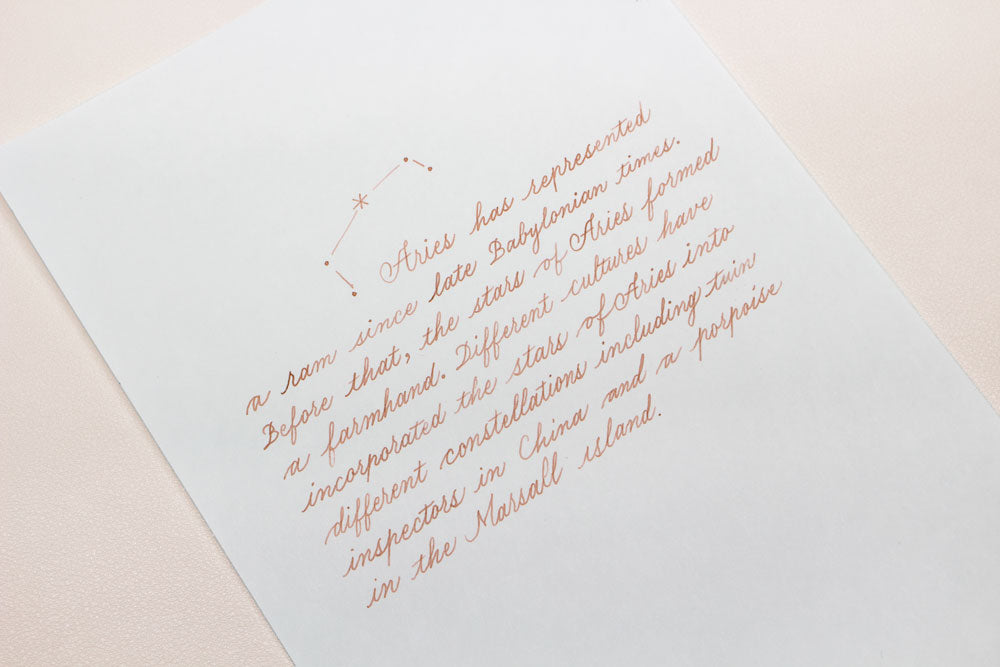 Aries has represented
a ram since late Babylonian times.
Before that, the stars of Aries formed
a farmhand. Different cultures have
incorporated the stars of Aries into
different constellations including tuin
inspectors in China and a porpoise
in the Marsall island.